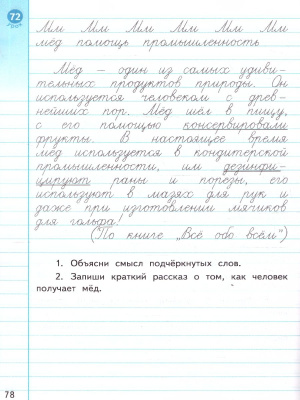 72
Мм Мм Мм Мм Мм Мм
мёд помощь промышленность
Мёд — один из самых удиви-
тельных продуктов природы. Он
используется человеком с древ-
нейших пор. Мёд шёл в пищу,
с его помощью консервировали
фрукты. В настоящее время
мёд используется в кондитерской
промышленности, им дезинфи-
цируют раны и порезы, его
используют в мазях для рук и
даже при изготовлении мячиков
для гольфа!
(По книге „Всё обо всём")
1. Объясни смысл подчёркнутых слов.
2. Запиши краткий рассказ о том, как человек
получает мёд.
78